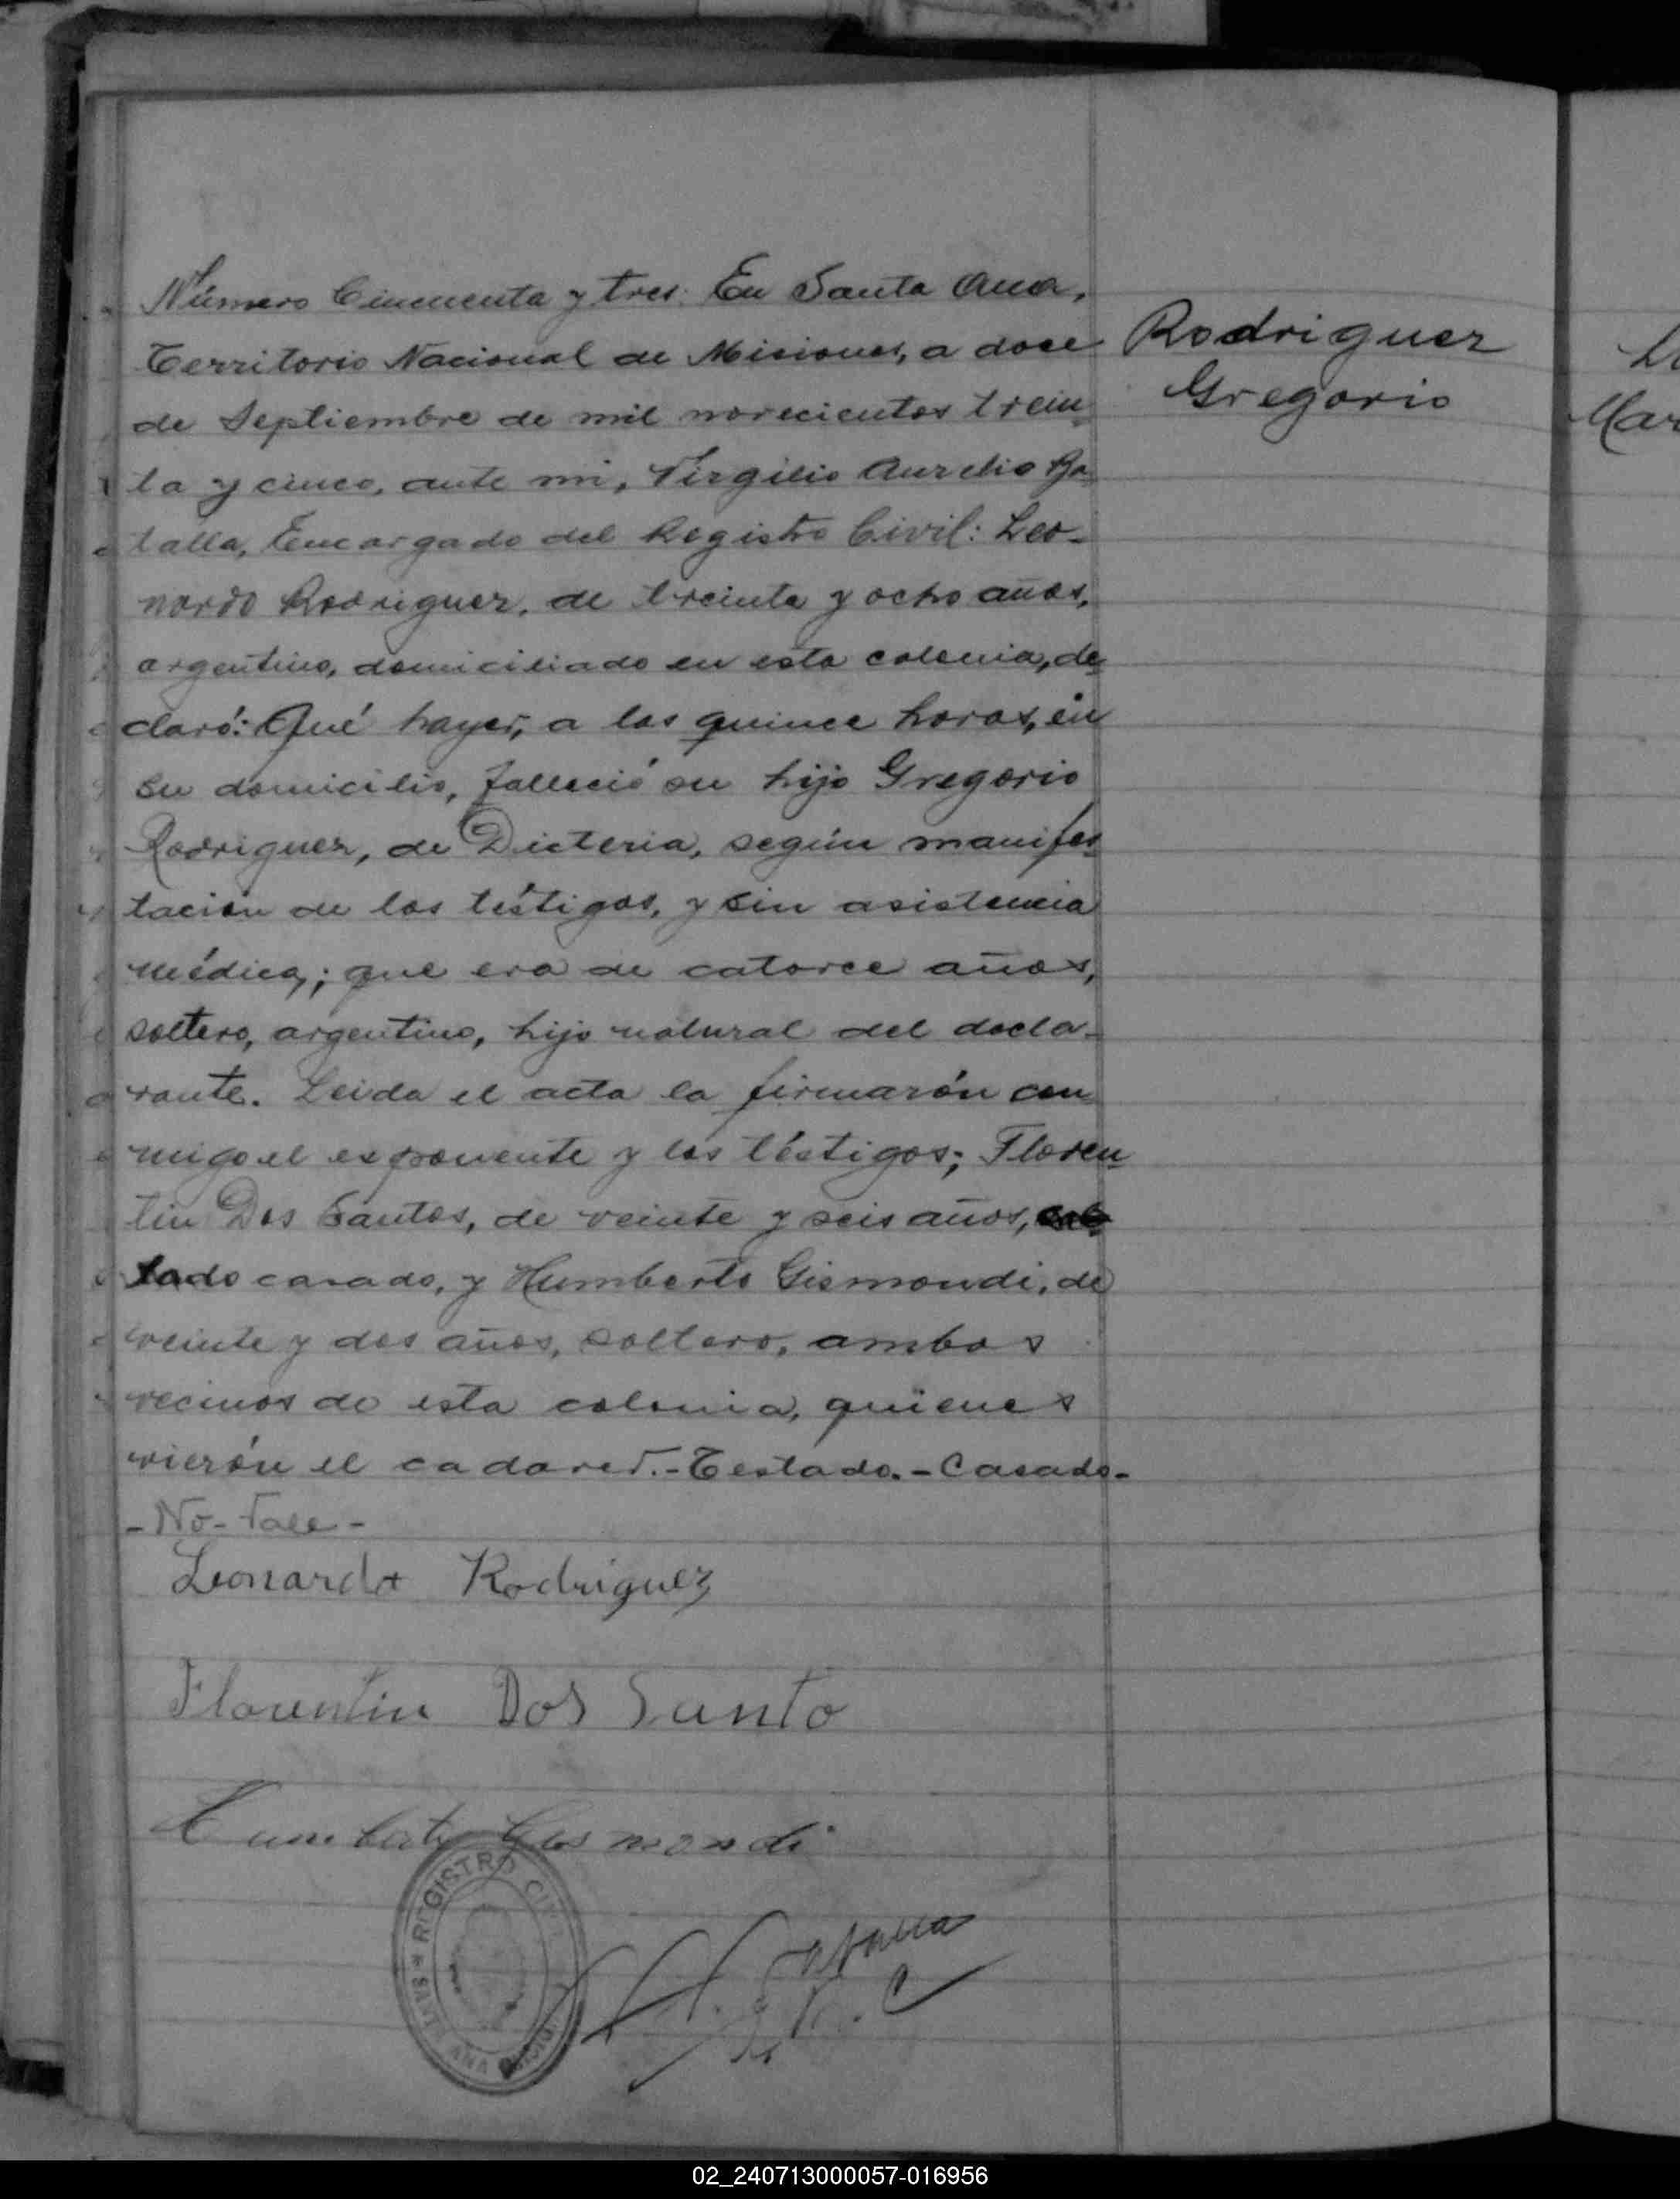 Número Cincuenta y tres: En Santa Ana,
Territorio Nacional de Misiones, a doce
de Septiembre de mil novecientos trein-
ta y cinco, ante mi, Virgilio Aurelio Ba-
talla, Encargado del Registro Civil: Leo-
nardo Rodriguez, de treinta y ocho años,
argentino, domiciliado en esta colonia, de-
claró: Qué hayer, a las quince horas, en
su domicilio, falleció su hijo Gregorio
Rodriguez, de Dicteria, según manifes-
tación de los téstigos, y sin asistencia
médica,; que era de catorce años,
soltero, argentino, hijo natural del decla-
rante. Leida el acta la firmarón con-
migo el exponente y los téstigos; Floren-
tin Dos Santos, de veinte y seis años,
casado, y Humberto Gismondi, de
veinte y dos años, soltero, ambos
vecinos de esta colonia, quienes
vierón el cadaver.-Testado.-Casado-
-No-Vale-
Rodriguez
Gregorio
Leonardo Rodriguez
Florentin Dos Santo
Humberto Gismondi
REGISTRO CIVIL
SANTA ANA
Mar
02_240713000057-016956